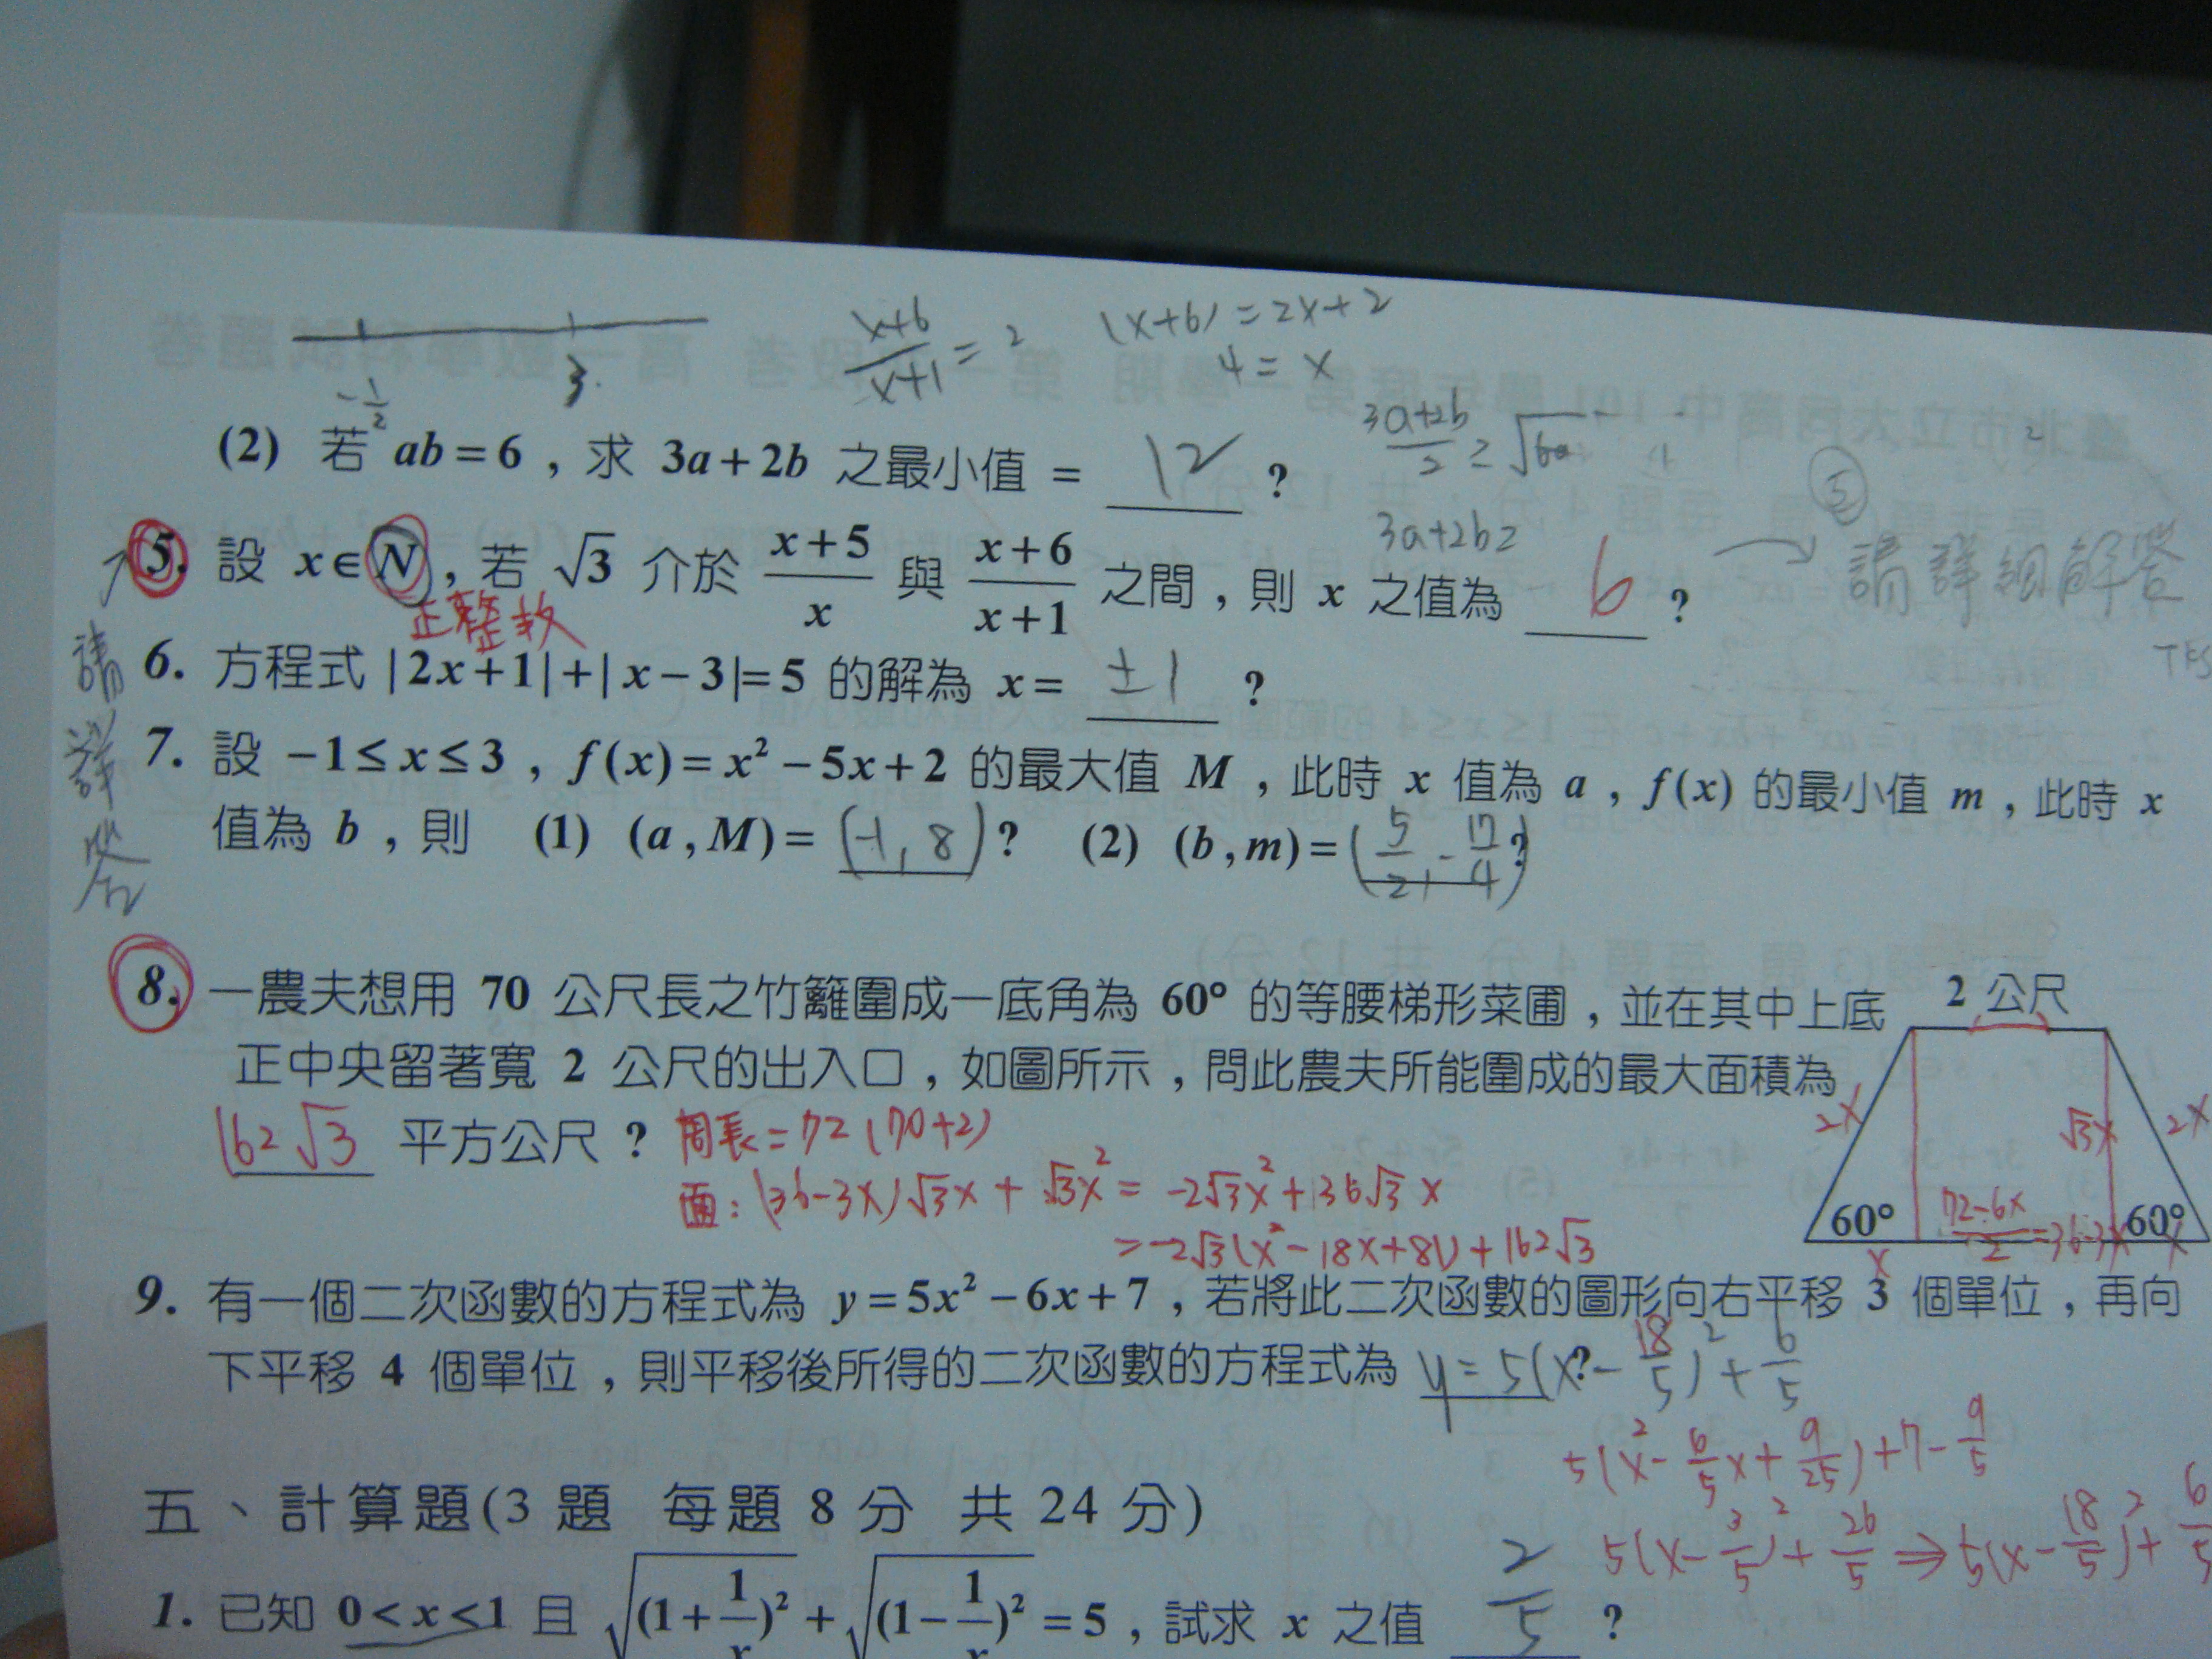 -1/2 3
x+6/x+1 = 2 (x+6) = 2x+2
4 = x
(2) 若 ab = 6 , 求 3a + 2b 之最小值 = 12 ?
3a+2b/2 ≥
3a+2b≥
5. 設 x ∈ N , 若 √3 介於 x+5/x 與 x+6/x+1 之間 , 則 x 之值為 6 ?
正整数
請詳細解答
請詳答
6. 方程式 |2x+1|+|x−3|=5 的解為 x = ±1 ?
7. 設 −1≤x≤3 , f(x) = x² − 5x + 2 的最大值 M , 此時 x 值為 a , f(x) 的最小值 m , 此時 x
值為 b , 則 (1) (a , M) = (-1, 8) ? (2) (b , m) = (5/2, -17/4) ?
8. 一農夫想用 70 公尺長之竹籬圍成一底角為 60° 的等腰梯形菜圃 , 並在其中上底
正中央留著寬 2 公尺的出入口 , 如圖所示 , 問此農夫所能圍成的最大面積為
162√3 平方公尺 ? 周長 = 72 (70+2)
面: (36-3x)√3x + √3x² = -2√3x² + 36√3x
= -2√3(x² - 18x + 81) + 162√3
2 公尺
2x √3x 2x
60° 72-6x/2 = 36-3x 60°
x x
9. 有一個二次函數的方程式為 y = 5x² − 6x + 7 , 若將此二次函數的圖形向右平移 3 個單位 , 再向
下平移 4 個單位 , 則平移後所得的二次函數的方程式為 y = 5(x - 18/5)² + 6/5 ?
5(x² - 6/5x + 9/25) + 7 - 9/5
5(x - 3/5)² + 26/5 ⇒ 5(x - 18/5)² + 6/5
五、計算題(3 題 每題 8 分 共 24 分)
1. 已知 0<x<1 且 √(1+1/x)² + √(1−1/x)² = 5 , 試求 x 之值 2/5 ?